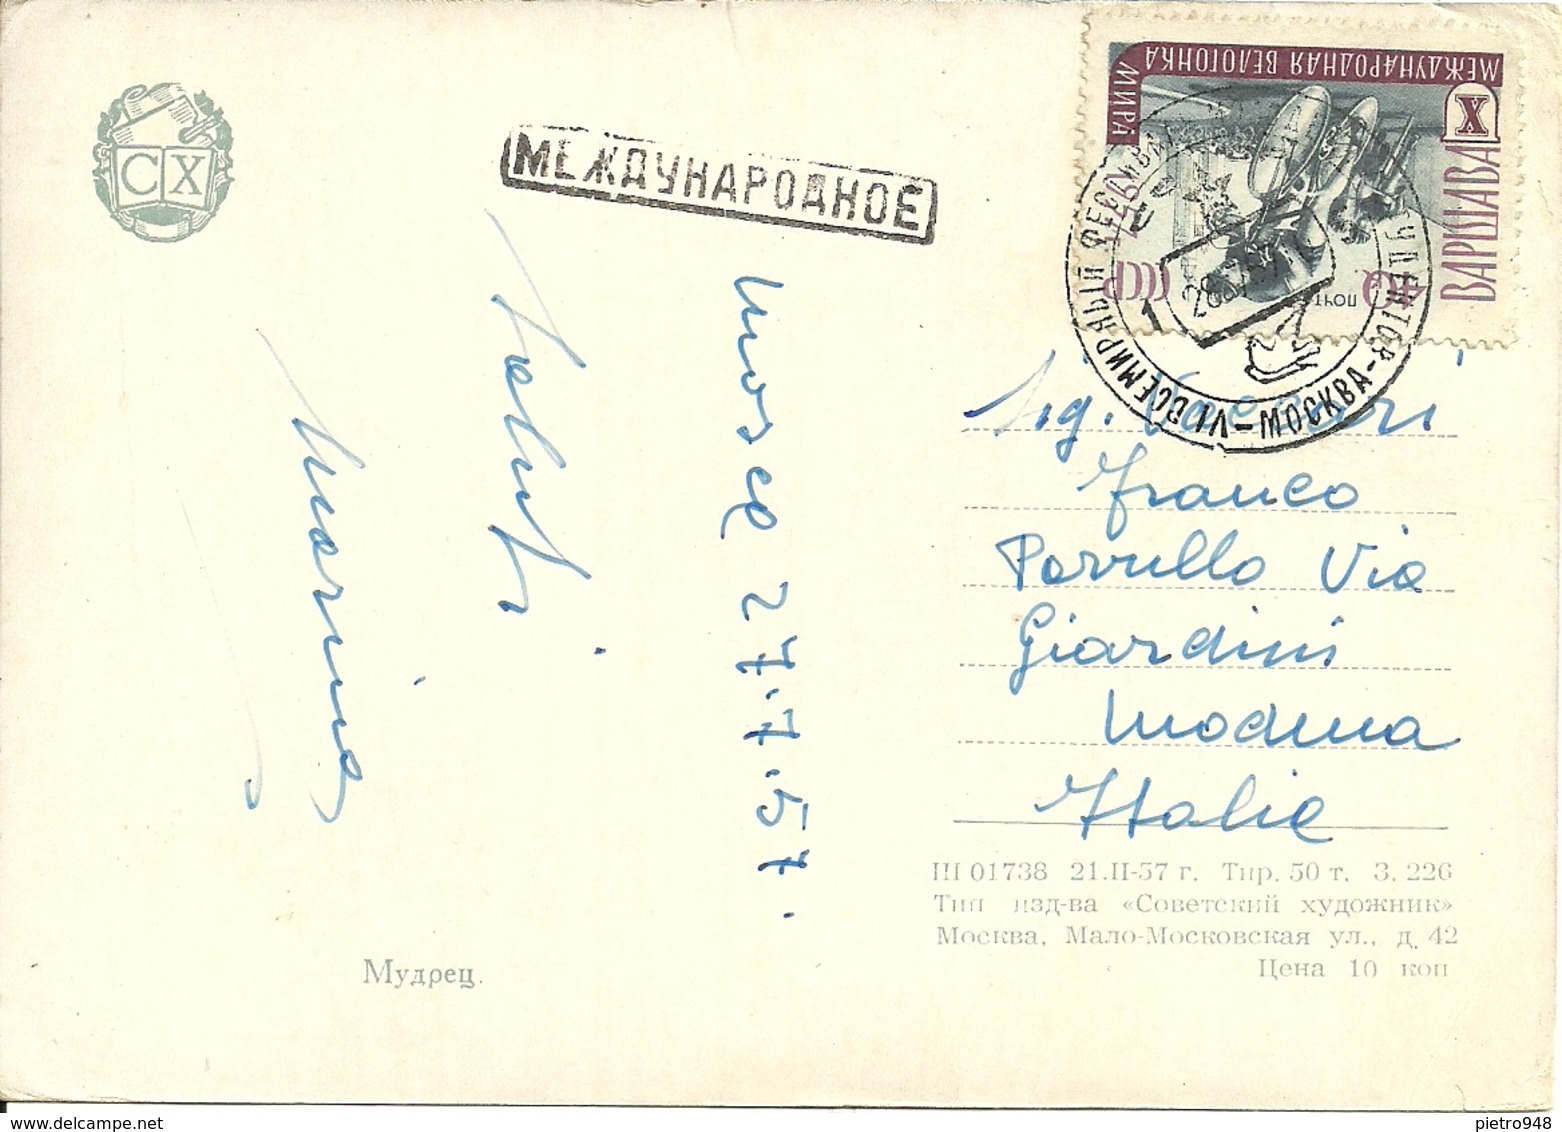 СХ
МЕЖДУНАРОДНОЕ
X МЕЖДУНАРОДНАЯ ВЕЛОГОНКА
МИРА
ВАРШАВА
40
СССР
VI ВСЕМИРНЫЙ ФЕСТИВАЛЬ
СТУДЕНТОВ - МОСКВА -
Mosca 27.7.57.
Saluti
Marina
Sig. Vaccari
Franco
Parrullo Via
Giardini
Modena
Italia
Ш 01738 21.II-57 г. Тир. 50 т. З. 226
Тип изд-ва «Советский художник»
Москва, Мало-Московская ул., д. 42
Цена 10 коп
Мудрец.
pietro948